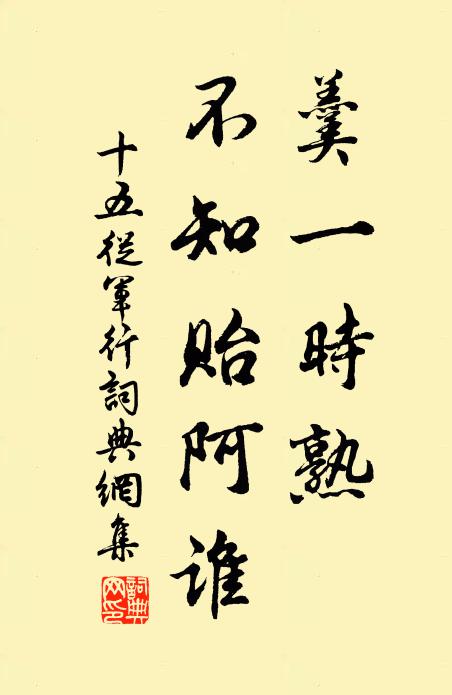 羹一時熟
不知貽阿誰
十五從軍行詞典網集
詞典
网印